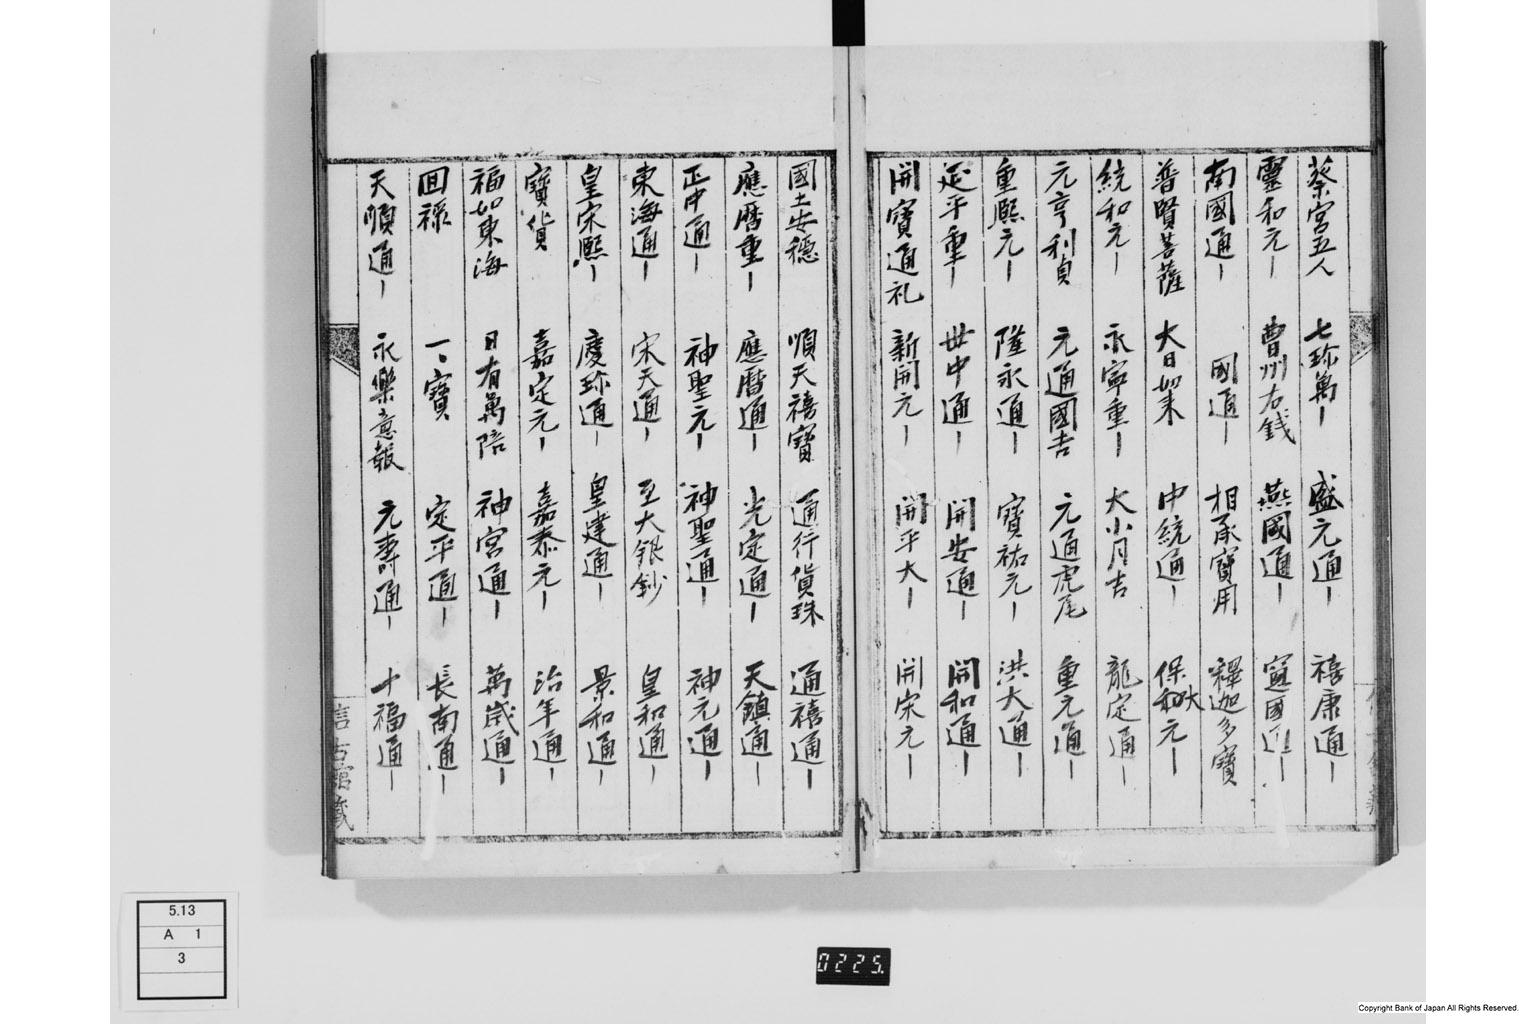 蔡宮五人 七珎萬〡 盛元通〡 禧康通〡
靈和元〡 曹州右錢 燕國通〡 寧國通〡
南國通〡 國通〡 相承寶用 釋迦多寶
普賢菩薩 大日如来 中統通〡 保大和元〡
統和元〡 永寧重〡 大小月吉 龍定通〡
元亨利貞 元通國吉 元通虎尾 重元通〡
重熈元〡 隆永通〡 寶祐元〡 洪大通〡
延平重〡 世中通〡 開安通〡 開和通〡
開寶通礼 新開元〡 開平大〡 開宋元〡
國土安穏 順天禧寶 通行貨珠 通禧通〡
應暦重〡 應暦通〡 光定通〡 天鎮通〡
正中通〡 神聖元〡 神聖通〡 神元通〡
東海通〡 宋天通〡 至大銀鈔 皇和通〡
皇宋熈〡 慶珎通〡 皇建通〡 景和通〡
寶貨 嘉定元〡 嘉泰元〡 治年通〡
福如東海 日有萬陪 神宮通〡 萬歳通〡
回禄 一、寶 定平通〡 長南通〡
天順通〡 永樂意報 元壽通〡 十福通〡
信古館藏
5.13
A 1
3
0225.
Copyright Bank of Japan All Rights Reserved.